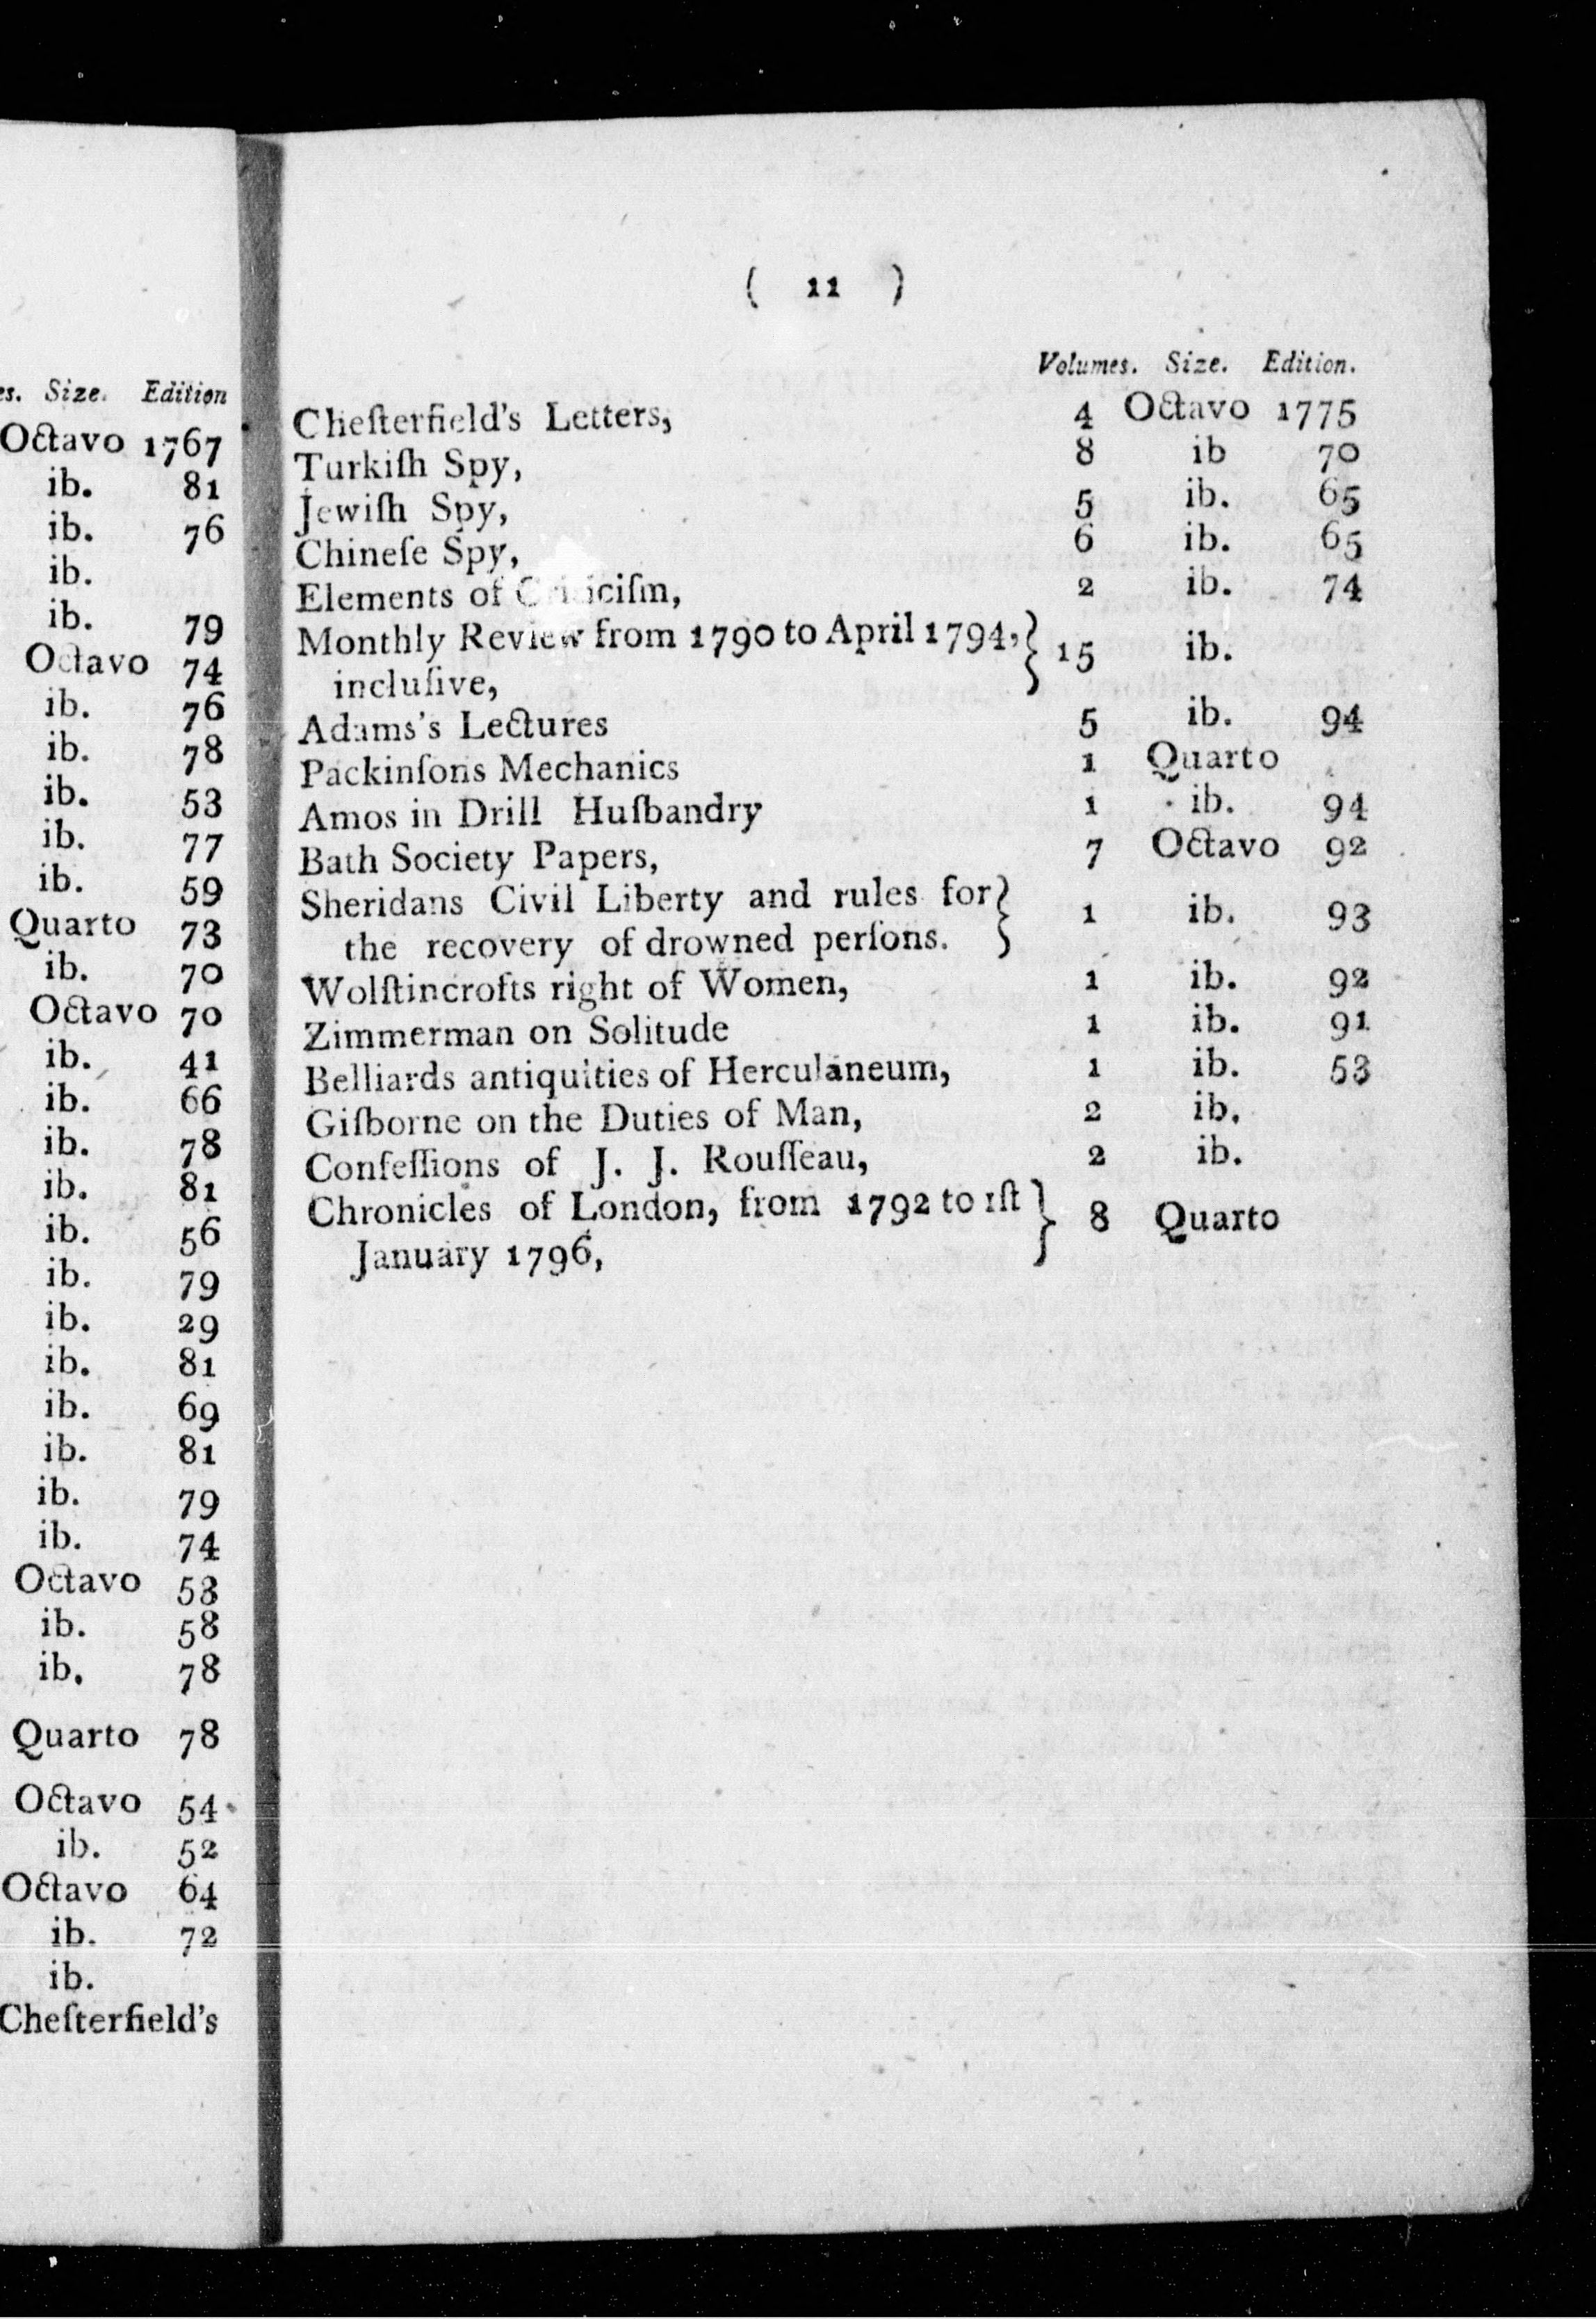 es. Size. Edition
Octavo 1767
ib. 81
ib. 76
ib.
ib. 79
Octavo 74
ib. 76
ib. 78
ib. 53
ib. 77
ib. 59
Quarto 73
ib. 70
Octavo 70
ib. 41
ib. 66
ib. 78
ib. 81
ib. 56
ib. 79
ib. 29
ib. 81
ib. 69
ib. 81
ib. 79
ib. 74
Octavo 53
ib. 58
ib. 78
Quarto 78
Octavo 54
ib. 52
Octavo 64
ib. 72
ib.
Cheſterfield's
( 11 )
Volumes. Size. Edition.
Cheſterfield's Letters, 4 Octavo 1775
Turkiſh Spy, 8 ib 70
Jewiſh Spy, 5 ib. 65
Chineſe Spy, 6 ib. 65
Elements of Criticiſm, 2 ib. 74
Monthly Review from 1790 to April 1794, } 15 ib.
incluſive,
Adams's Lectures 5 ib. 94
Packinſons Mechanics 1 Quarto
Amos in Drill Huſbandry 1 ib. 94
Bath Society Papers, 7 Octavo 92
Sheridans Civil Liberty and rules for } 1 ib. 93
the recovery of drowned perſons.
Wolſtincrofts right of Women, 1 ib. 92
Zimmerman on Solitude 1 ib. 91
Belliards antiquities of Herculaneum, 1 ib. 53
Giſborne on the Duties of Man, 2 ib.
Confeſſions of J. J. Rouſſeau, 2 ib.
Chronicles of London, from 1792 to 1ſt } 8 Quarto
January 1796,